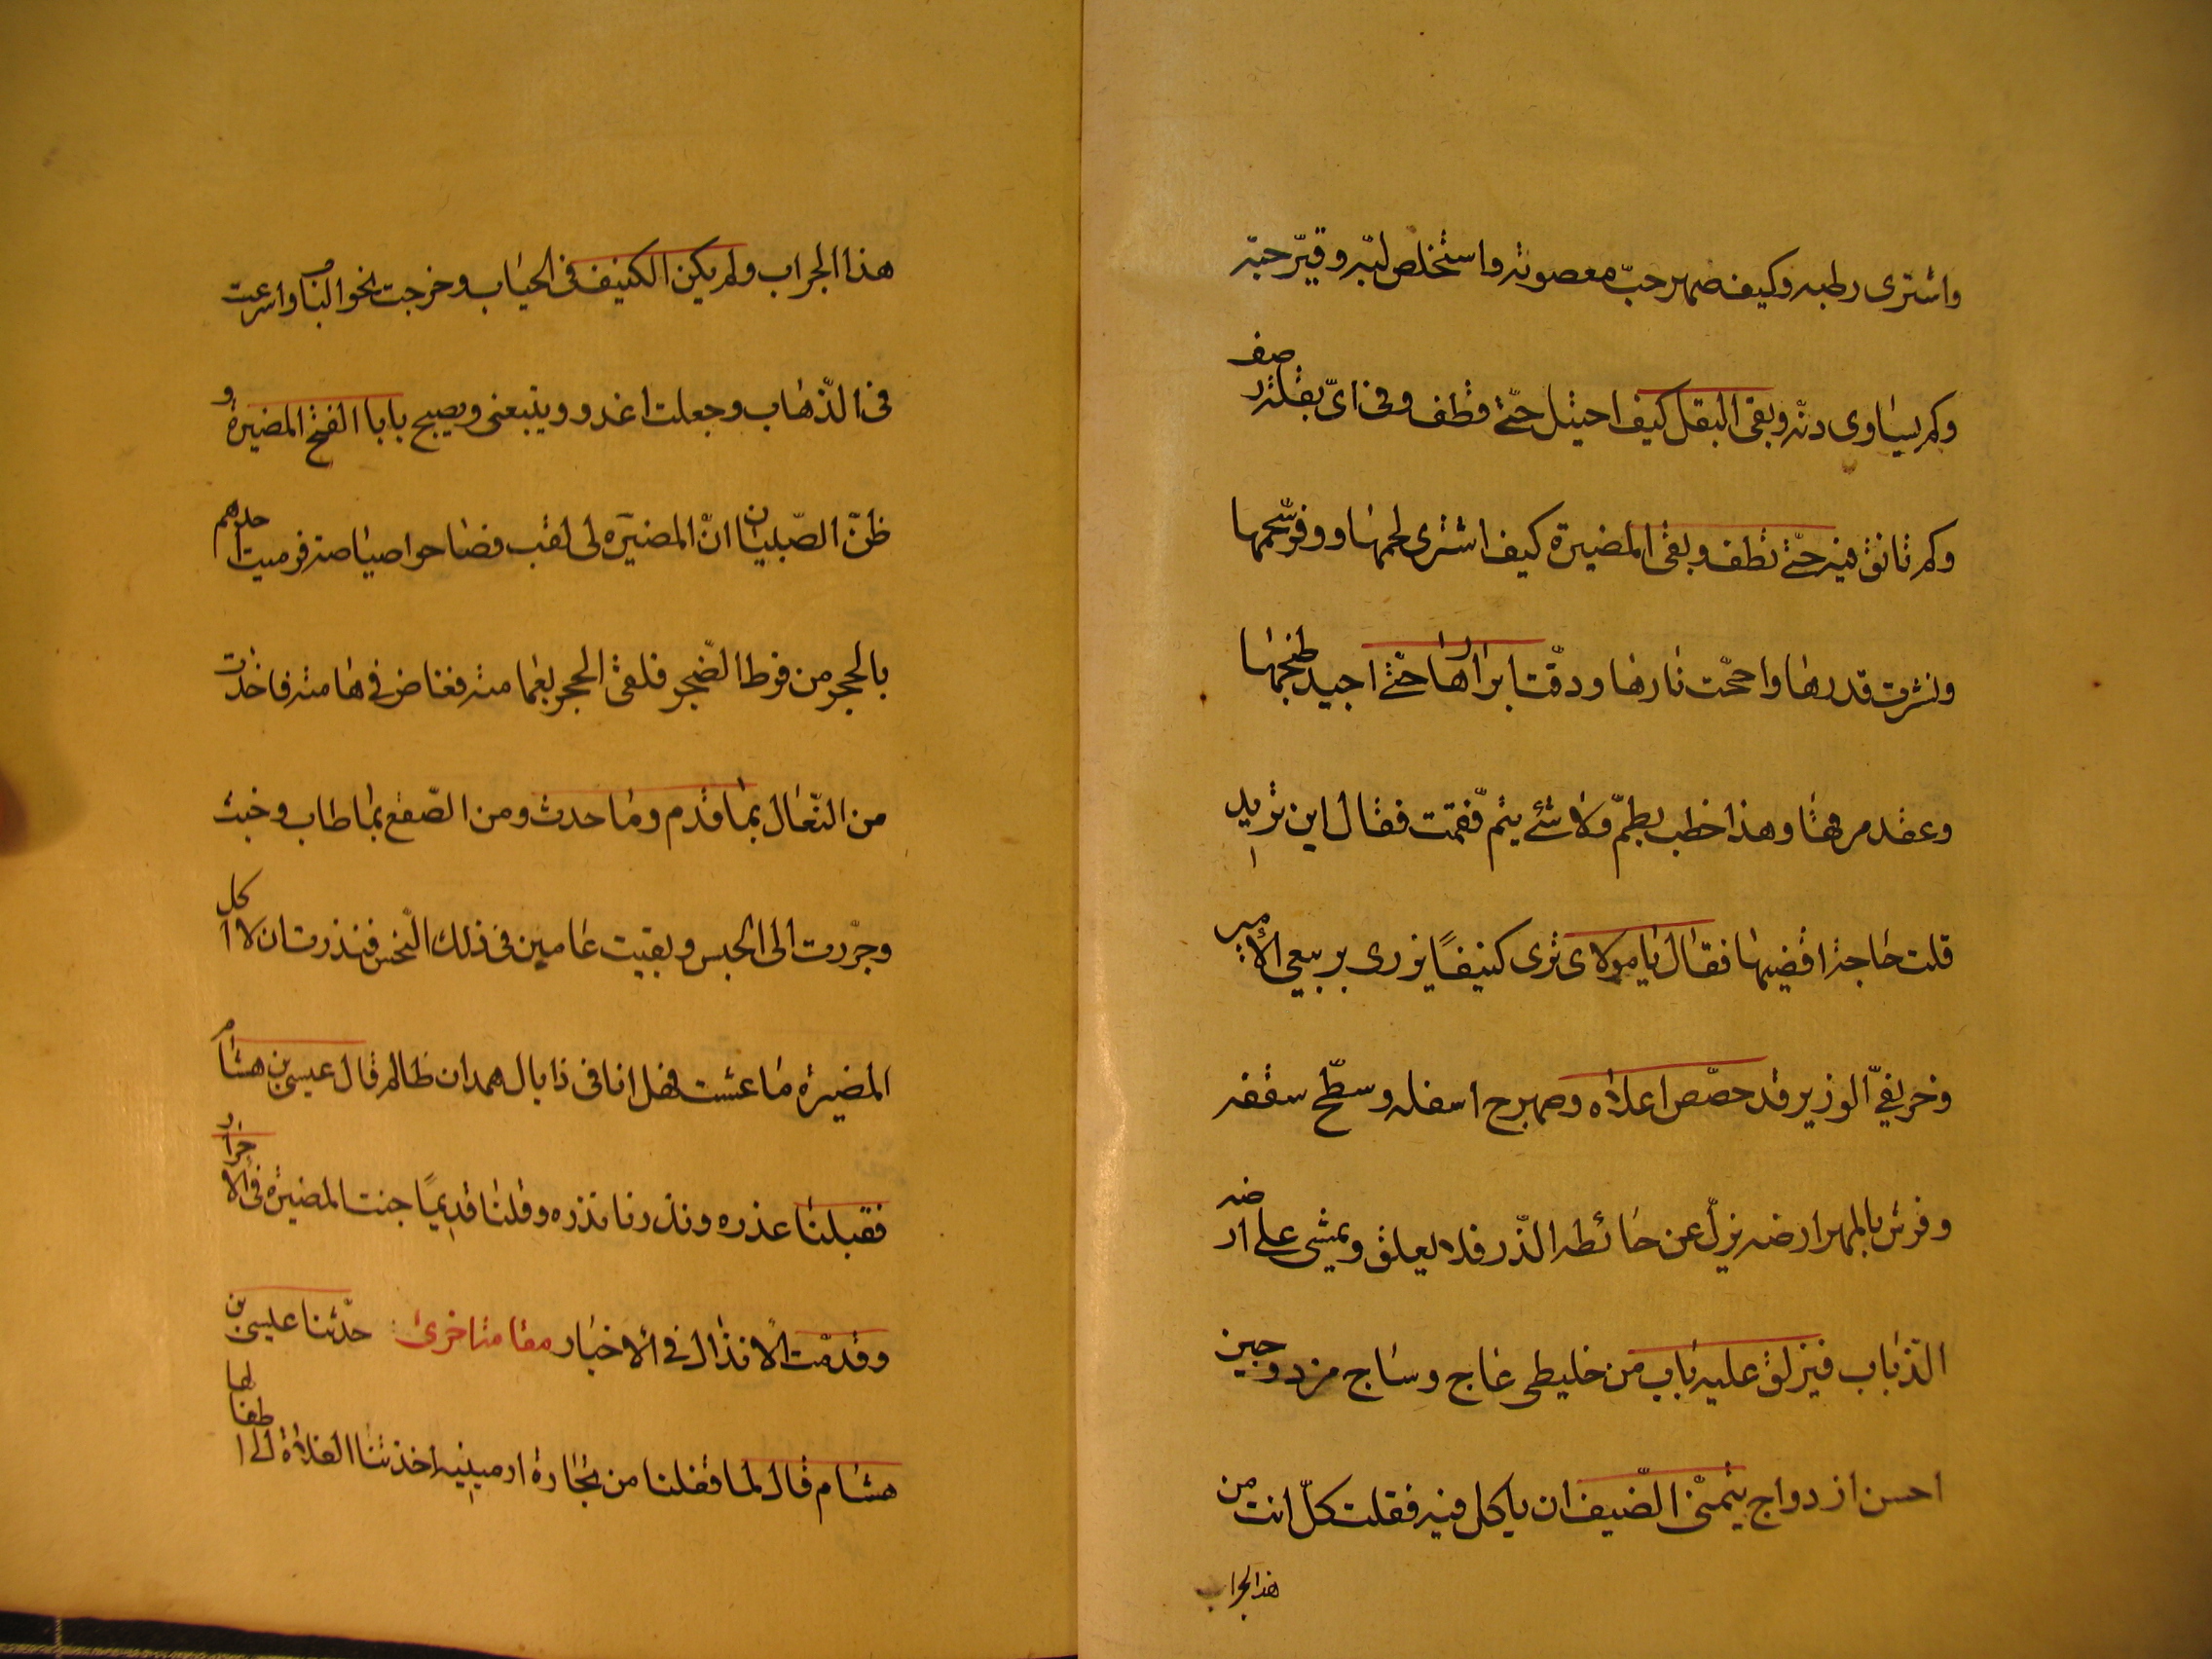 واشترى رطبه وكيف صهرجت معصرته واستخلص لبّه وقيّر حبّه
وكم يساوى دنّه وبقى البقل كيف احتيل حتّى قطف وفى اىّ بقلة رصف
وكم تانق فيه حتّى نظف وبقى المضيرة كيف اشترى لحمها ووفّى شحمها
ونشرت قدرها واججت نارها ودقت ابزارها حتّى اجيد طبخها
وعقد مرقها وهذا خطب يطمّ ولا شئ يتمّ فقمت فقال اين تريد
قلت حاجة اقضيها فقال يا مولاى ترى كنيفًا يزرى بربيعى الامير
وخريفىّ الوزير قد جصّص اعلاه وصهرج اسفله وسطّح سقفه
وفرش بالمهر ارضه يزلّ عن حائطه الذّر فلا يعلق ويمشى على ارضه
الذّباب فيزلق عليه باب من خليطى عاج وساج مزدوجين
احسن ازدواج يتمنّى الضّيف ان ياكل فيه فقلت كلّ انت من
هذا الجراب
هذا الجراب ولم يكن الكنيف فى الحياب وخرجت نحو الباب واسرعت
فى الذّهاب وجعلت اغدو ويتبعنى ويصيح يابا الفتح المضيرة و
ظنّ الصّبيان انّ المضيرة لى لقب فصاحوا صياصه فرميت احدهم
بالحجر من فرط الضّجر فلقى الحجر بعمامته فغاض فى هامته فاخذت
من النّعال بما قدم وما حدث ومن الصّفع بما طاب وخبث
وجرّرت الى الحبس وبقيت عامين فى ذلك النّحس فنذرت ان لا اكل
المضيرة ما عشت فهل انا فى ذا يال همدان ظالم قال عيسى بن هشام
فقبلنا عذره ونذرنا نذره وقلنا قديمًا جنت المضيرة فى الاحرار
وقدمّت الانذال فى الاخيار مقامة اخرى حدّثنا عيسى بن
هشام قال لما قفلنا من تجارة ارمينيه اخذتنا الفلاة الى اطفالها